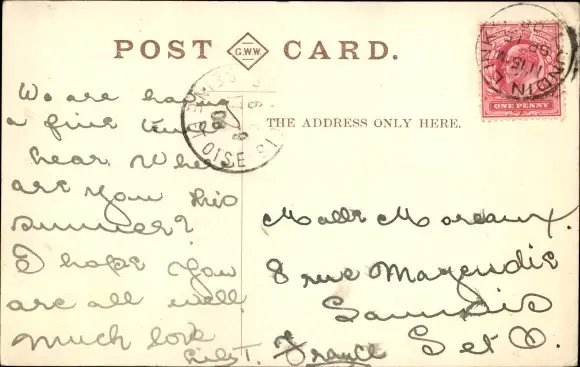 POST G.W.W. CARD.
THE ADDRESS ONLY HERE.
ONE PENNY
LUNDIN LINKS
SEINE & OISE
We are having
a fine time
hear. Where
are you this
summer?
I hope you
are all well
much love
Lily T.
Malle Moreaux.
8 rue Magendie
Sannois
S et O.
France